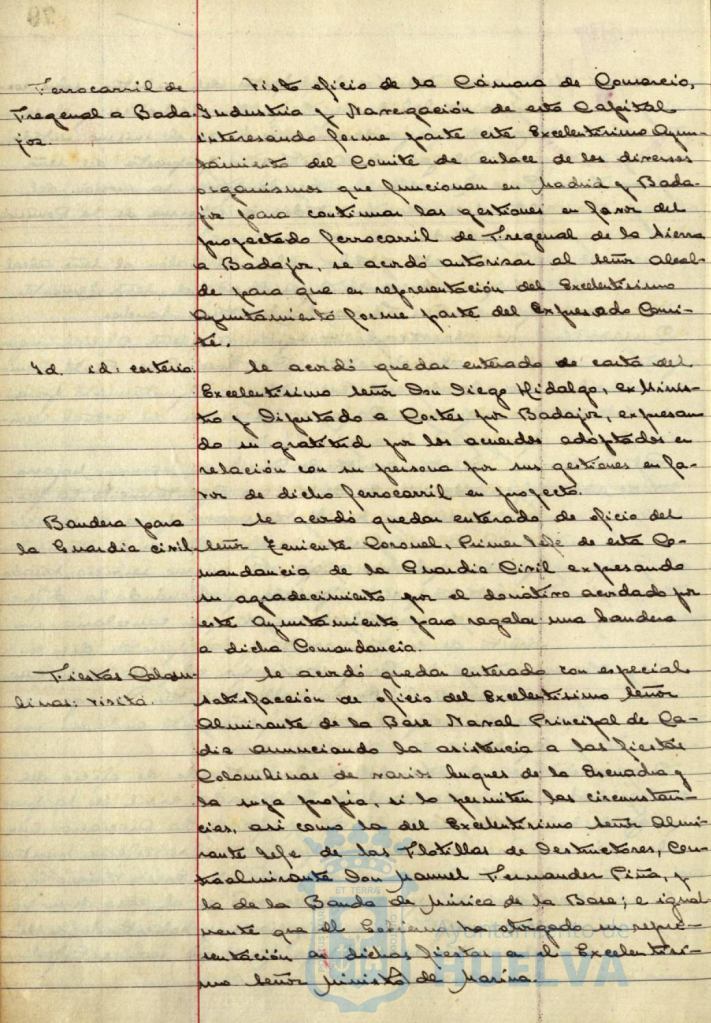 Ferrocarril de
Fregenal a Bada-
joz.
Visto oficio de la Cámara de Comercio,
Industria y Navegación de esta Capital
interesando forme parte este Excelentísimo Ayun-
tamiento del Comité de enlace de los diversos
organismos que funcionan en Madrid y Bada-
joz para continuar las gestiones en favor del
proyectado ferrocarril de Fregenal de la Sierra
a Badajoz, se acordó autorizar al señor Alcal-
de para que en representación del Excelentísimo
Ayuntamiento forme parte del expresado Comi-
té.
Id. id: cortesía.
Se acordó quedar enterado de carta del
Excelentísimo Señor Don Diego Hidalgo, ex Minis-
tro y Diputado a Cortes por Badajoz, expresan-
do su gratitud por los acuerdos adoptados en
relación con su persona por sus gestiones en fa-
vor de dicho ferrocarril en proyecto.
Bandera para
la Guardia civil.
Se acordó quedar enterado de oficio del
Señor Teniente Coronel, Primer Jefe de esta Co-
mandancia de la Guardia Civil expresando
su agradecimiento por el donativo acordado por
este Ayuntamiento para regalar una bandera
a dicha Comandancia.
Fiestas Colom-
binas: visita.
Se acordó quedar enterado con especial
satisfacción de oficio del Excelentísimo Señor
Almirante de la Base Naval Principal de Ca-
diz anunciando la asistencia a las fiestas
Colombinas de varios buques de la Escuadra y
la suya propia, si lo permiten las circunstan-
cias, así como la del Excelentísimo Señor Almi-
rante Jefe de las Flotillas de Destructores, Con-
traalmirante Don Manuel Fernandez Piña, y
la de la Banda de Música de la Base; e igual
mente que el Gobierno ha otorgado su repre-
sentación en dichas fiestas en el Excelentísi-
mo Señor Ministro de Marina.
Ayuntamiento de
HUELVA